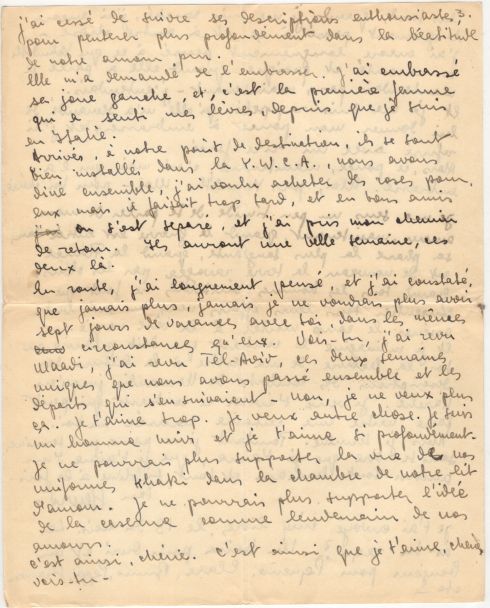 j'ai cessé de suivre ses descriptions enthousiastes, 3.
pour pénétrer plus profondément dans la béatitude
de notre amour pur.
Elle m'a demandé de l'embrasser. J'ai embrassé
sa joue gauche, et, c'est la première femme
qui a senti mes lèvres, depuis que je suis
en Italie.
Arrivés, à notre point de destination, ils se sont
bien installés dans la Y.W.C.A., nous avons
diné ensemble, j'ai voulu acheter des roses pour
eux mais il faisait trop tard, et en bons amis
on s'est séparé, et j'ai pris mon chemin
de retour. Ils auront une belle semaine, ces
deux là.
En route, j'ai longuement pensé, et j'ai constaté,
que jamais plus, jamais je ne voudrais plus avoir
sept jours de vacances avec toi, dans les mêmes
circonstances qu'eux. Vois-tu, j'ai revu
Maadi, j'ai revu Tel-Aviv, ces deux semaines
uniques que nous avons passé ensemble et les
départs qui s'en suivaient - Non, je ne veux plus
ça. Je t'aime trop. Je veux autre chose. Je suis
un homme mûr, et je t'aime si profondément.
Je ne pourrais plus supporter la vue de nos
uniformes Khaki dans la chambre de notre lit
d'amour. Je ne pourrais plus supporter l'idée
de la caserne comme lendemain de nos
amours.
C'est ainsi, chérie. C'est ainsi que je t'aime, chérie
vois-tu -